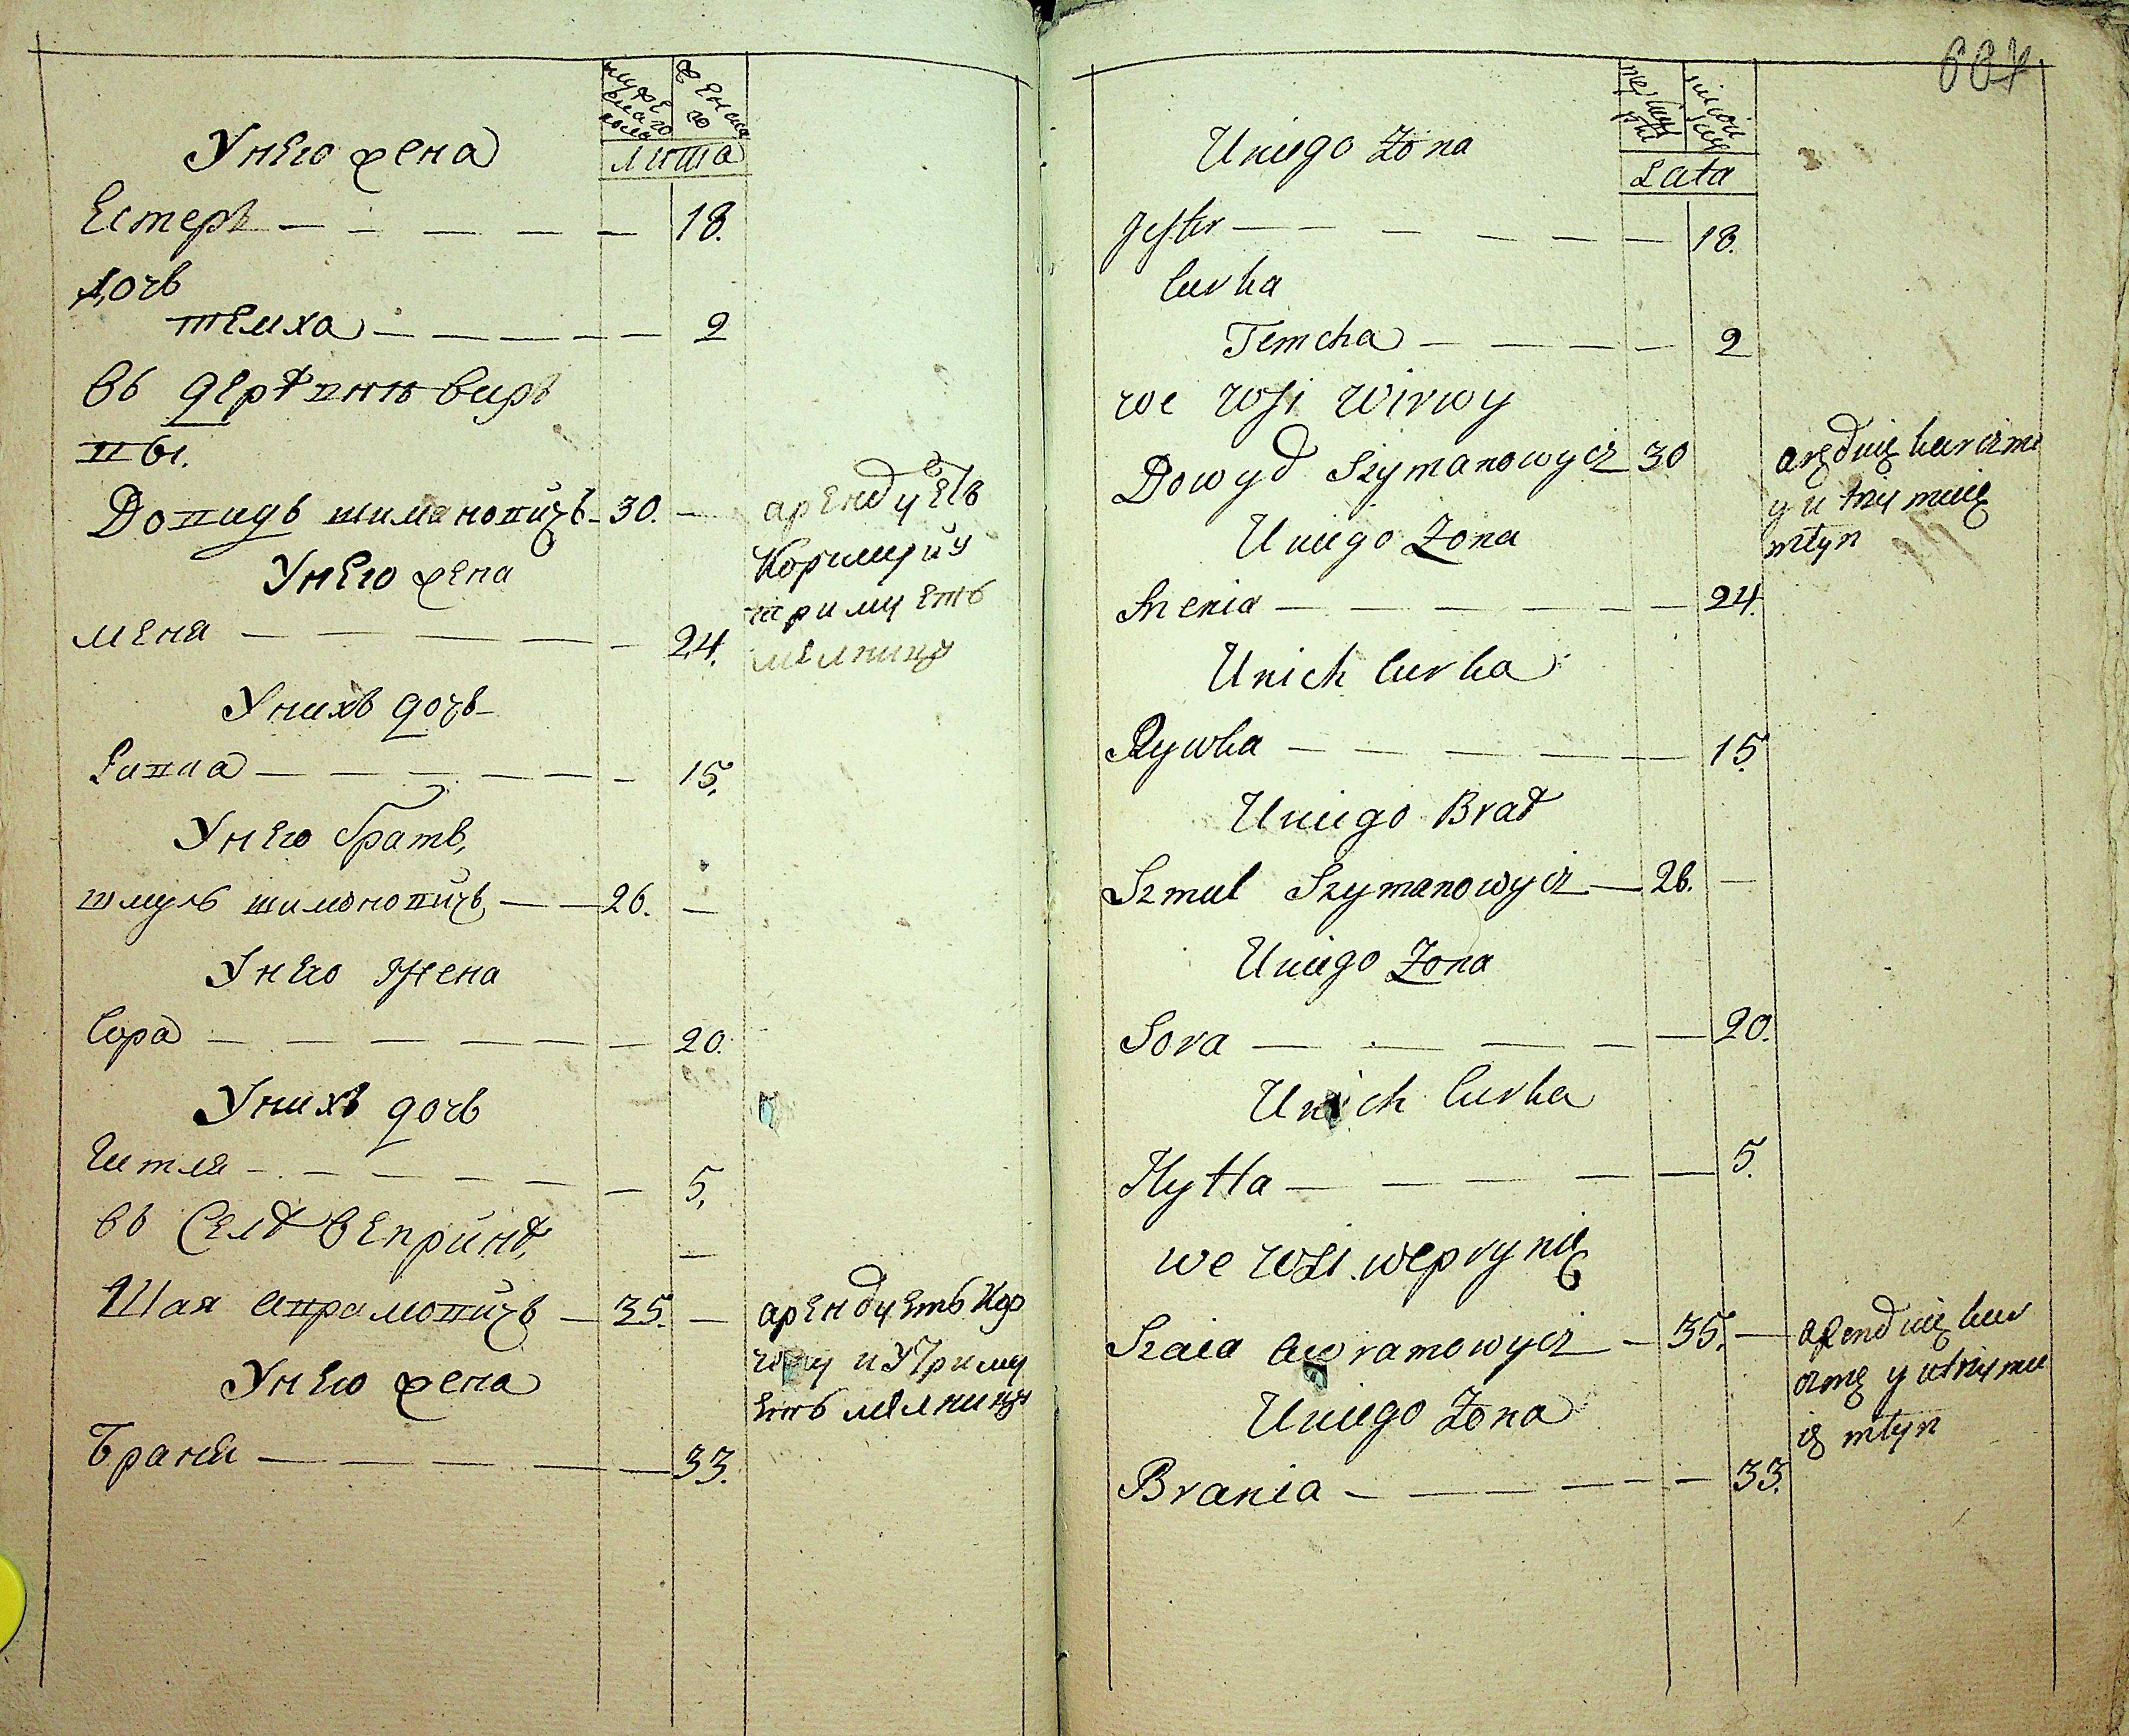 мужеска пола
женска го
лита
У него жена
Естеръ — — — — — 18.
дочь
темха — — — — — 2
въ деревни вирв
вы.
Довидъ шимановичъ — 30. —
арендуетъ
Корчму и у
тримуетъ
мелницу
У него жена
меня — — — — — 24.
У нихъ дочь
Ривка — — — — — 15.
У него братъ,
шмуль шимоновичъ — — 26. —
У него жена
Сора — — — — — 20.
У нихъ дочь
Гитля — — — — — 5.
въ Селѣ вепринѣ, —
Шая аврамовичъ — 35. —
арендуетъ Кор
чму и Утриму
етъ мелницу
У него жена
Браня — — — — — 33.
687
Lata
Uniego Zona
Jester — — — — — 18.
Curka
Temcha — — — — 2
we wsi Wirwy
Dowyd Szymanowycz 30
aręduię karczme
y utrzymuię
młyn
Uniego Zona
Mienia — — — — — 24.
Unich Curka
Rywka — — — — — 15.
Uniego Brat
Szmul Szymanowycz — 26. —
Uniego Zona
Sora — — — — — 20.
Unich Curka
Hytla — — — — — 5.
we wsi weprynię
Szaia Awramowycz — 35. —
arenduię kar
czmę y utrzymu
ię młyn
Uniego Zona
Brania — — — — — 33.